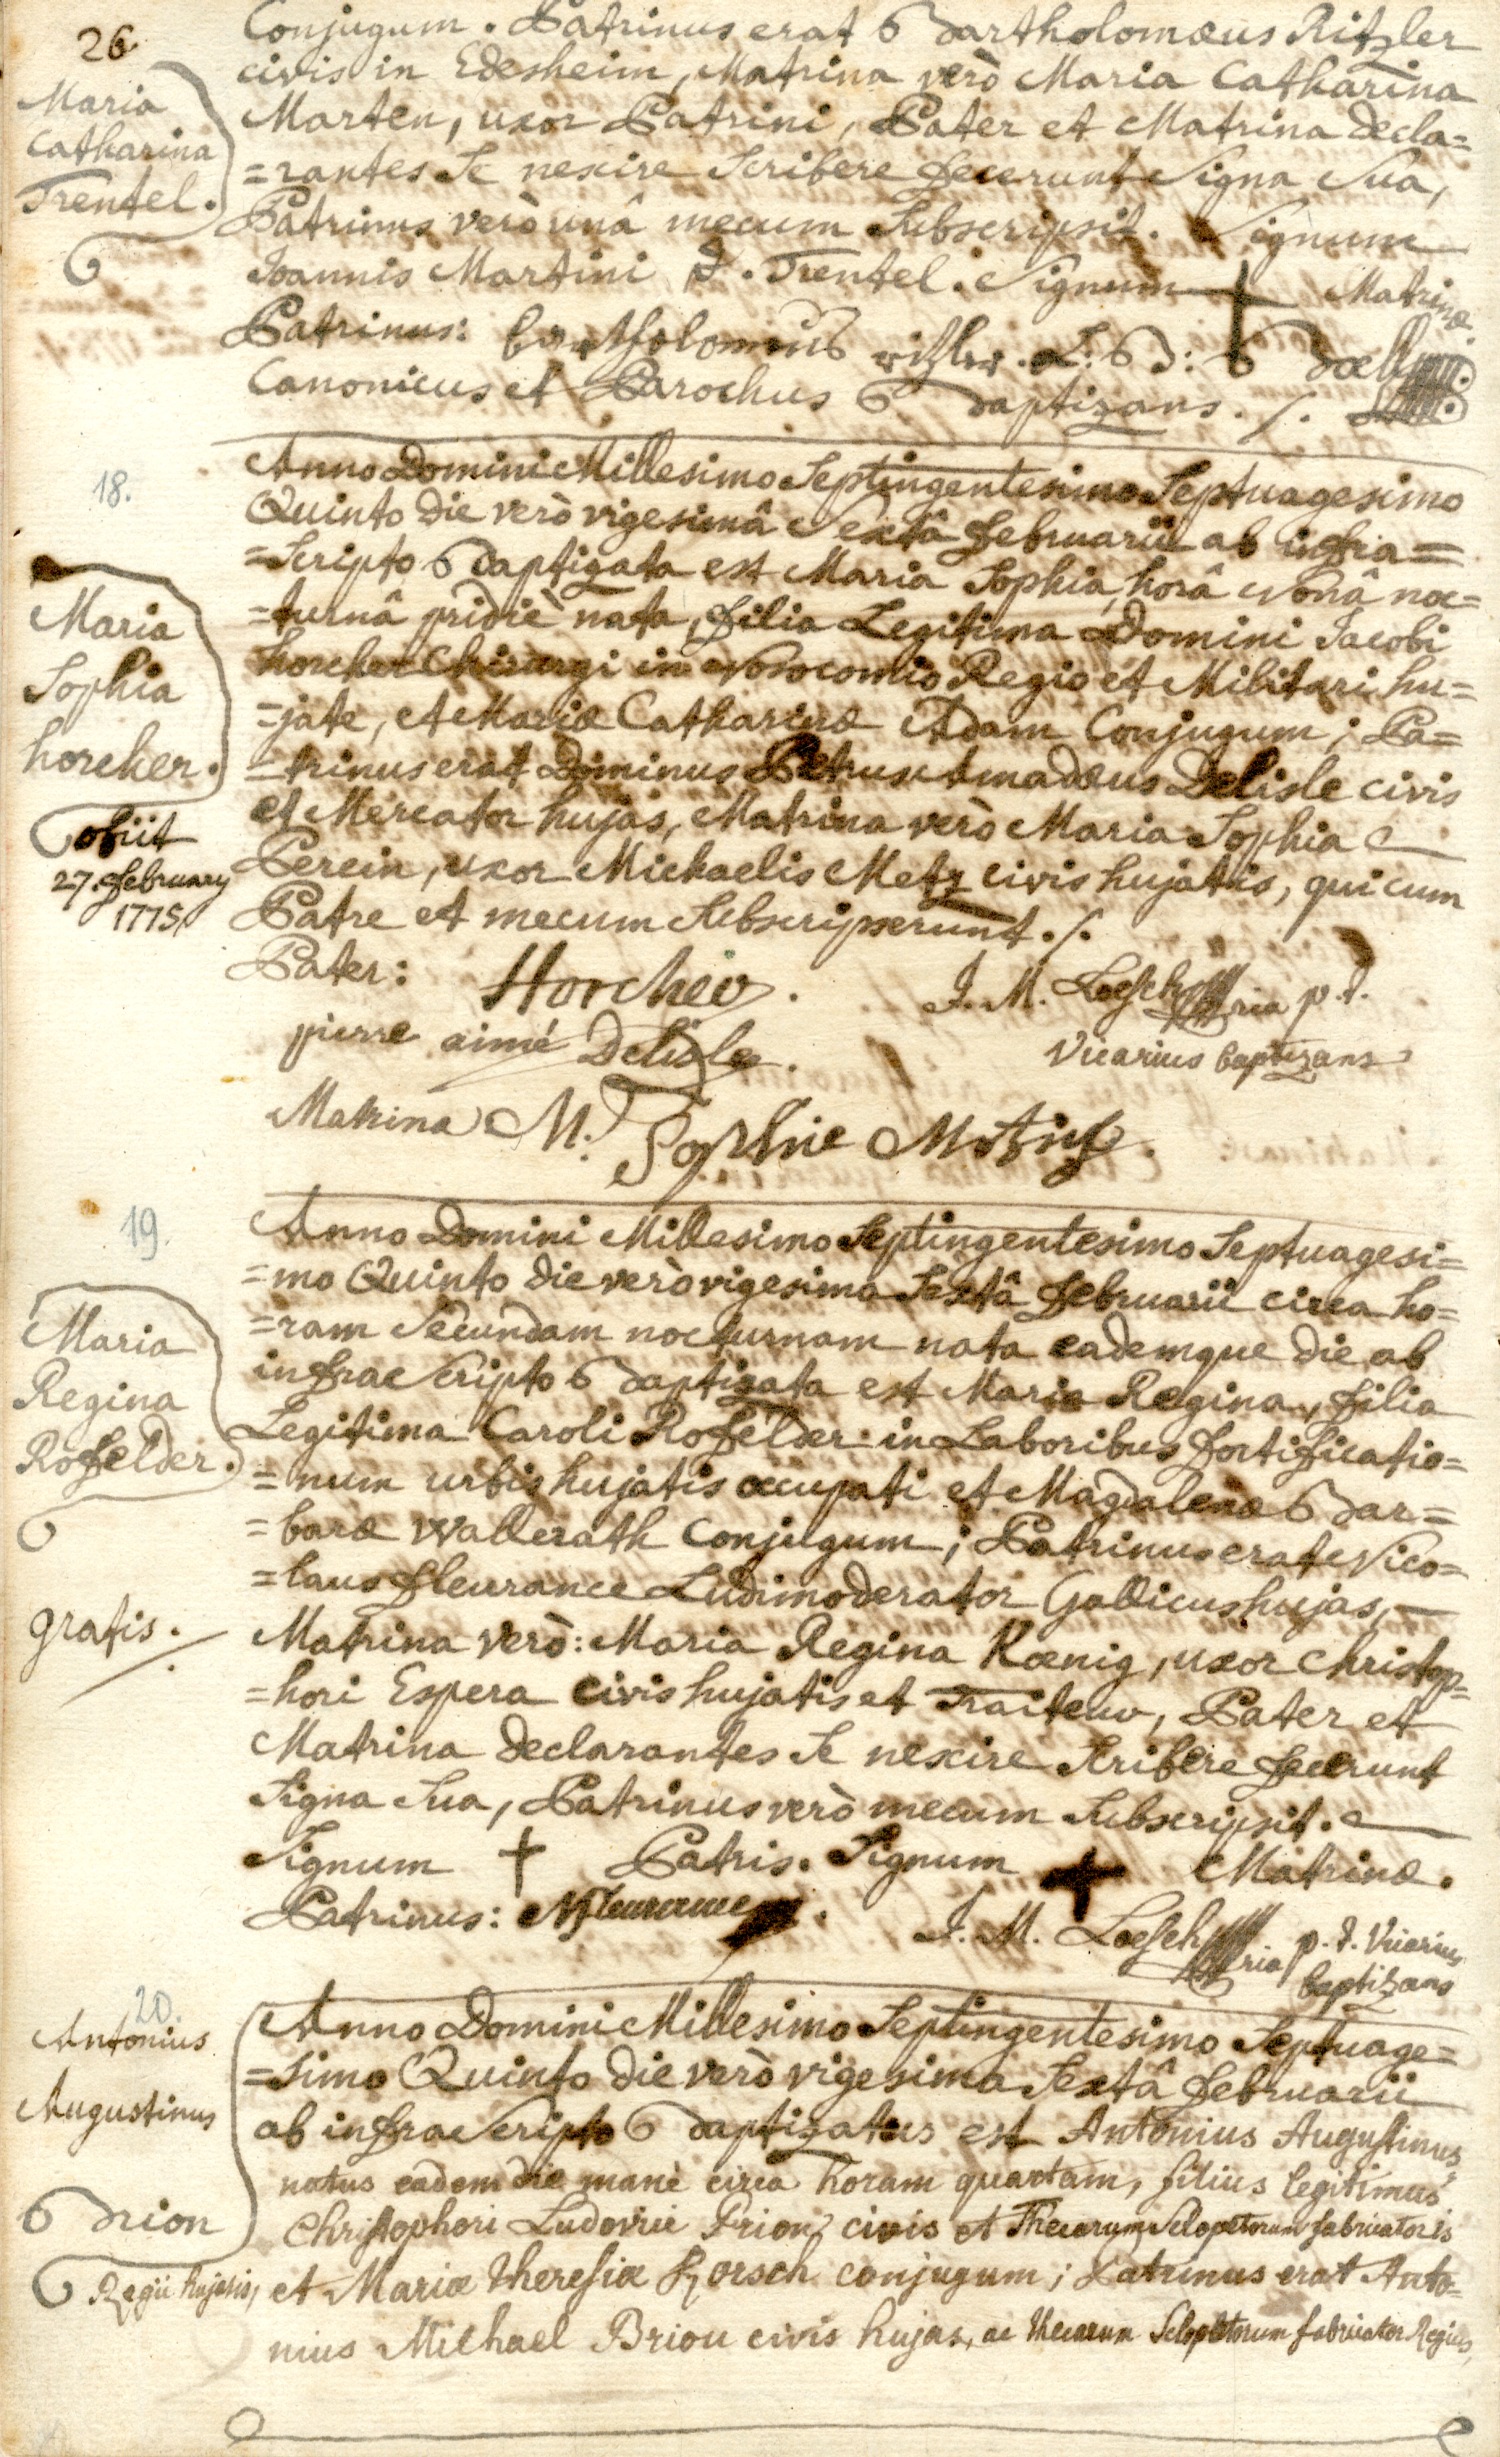 26
Conjugum. Patrinus erat Bartholomæus Ritzler
civis in Edesheim, Matrina verò Maria Catharina
Marten, uxor Patrini, Pater et Matrina decla=
=rantes Se nescire Scribere fecerunt Signa Sua,
Patrinus verò unâ mecum Subscripsit. Signum
Joannis Martini †. Trentel. Signum + Matrinæ
Patrinus: Bartholomeus ritzler.
Canonicus et Parochus Baptizans. /.
Maria
Catharina
Trentel.
18.
Anno Domini Millesimo Septingentesimo Septuagesimo
Quinto die verò vigesimâ Sextâ februarii ab infra=
=Scripto Baptizata est Maria Sophia, horâ Nonâ noc=
=turnâ pridiè nata, filia Legitima Domini Jacobi
horcher Chirurgi in Nosocomio Regio et Militari hu=
=jate, et Mariæ Catharinæ Adam Conjugum; Pa=
=trinus erat Dominus Petrus Amadæus Delisle civis
et Mercator hujas, Matrina verò Maria Sophia
Perein, uxor Michaelis Metz civis hujatis, qui cum
Patre et mecum Subscripserunt. /.
Maria
Sophia
horcher.
obiit
27. february
1775
Pater: Horcher.
J. M. Loesch p. t.
pierre aimé Delisle.
Vicarius baptizans
Matrina M. Sophie
19.
Anno Domini Millesimo Septingentesimo Septuagesi=
=mo Quinto die verò vigesima Sextâ februarii circa ho=
=ram Secundam nocturnam nata eademque die ab
infraScripto Baptizata est Maria Regina, filia
Legitima Caroli Rofelder in Laboribus fortificatio=
=num urbis hujatis occupati et Magdalenæ Bar=
=baræ Wallerath Conjugum; Patrinus erat Nico=
=laus fleurance Ludimoderator Gallicus hujas,
Matrina verò: Maria Regina Kœnig, uxor Christop=
=hori Espera civis hujatis et Traiteur, Pater et
Matrina declarantes Se nescire Scribere fecerunt
Signa Sua, Patrinus verò mecum Subscripsit.
Signum + Patris. Signum + Matrinæ.
Patrinus: N fleurance.
J. M. Loesch p. t. Vicarius
baptizans
Maria
Regina
Rofelder.
gratis.
20.
Anno Domini Millesimo Septingentesimo Septuage=
=simo Quinto die verò vigesima Sextâ februarii
ab infraScripto Baptizatus est Antonius Augustinus,
natus eadem die manè circa horam quartam, filius legitimus
Christophori Ludovici Brion, civis et Thecarum Sclopetorum fabricatoris
Regii hujatis, et Mariæ Theresiæ Horsch conjugum; Patrinus erat Anto=
nius Michael Brion civis hujas, ac thecarum Sclopetorum fabricator Regius,
Antonius
Augustinus
Brion